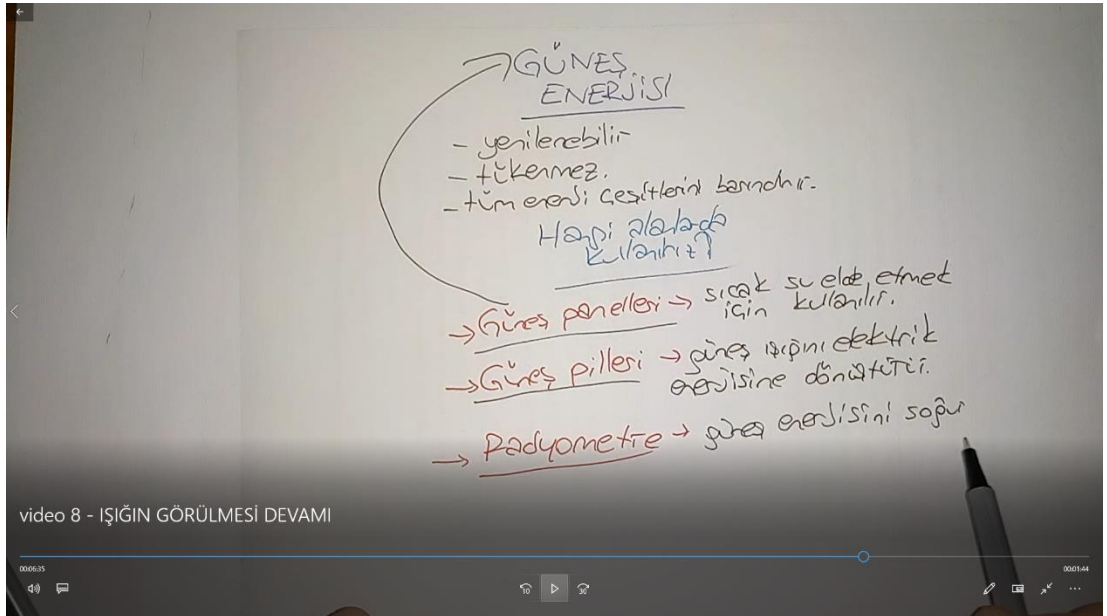 GÜNEŞ
ENERJİSİ
- yenilenebilir
- tükenmez.
- tüm enerji çeşitlerini barındırır.
Hangi alanlarda
kullanırız?
→ Güneş panelleri → sıcak su elde etmek
için kullanılır.
→ Güneş pilleri → güneş ışığını elektrik
enerjisine dönüştürür.
→ Radyometre → güneş enerjisini soğur
video 8 - IŞIĞIN GÖRÜLMESİ DEVAMI
00:06:35
00:01:44
10
30